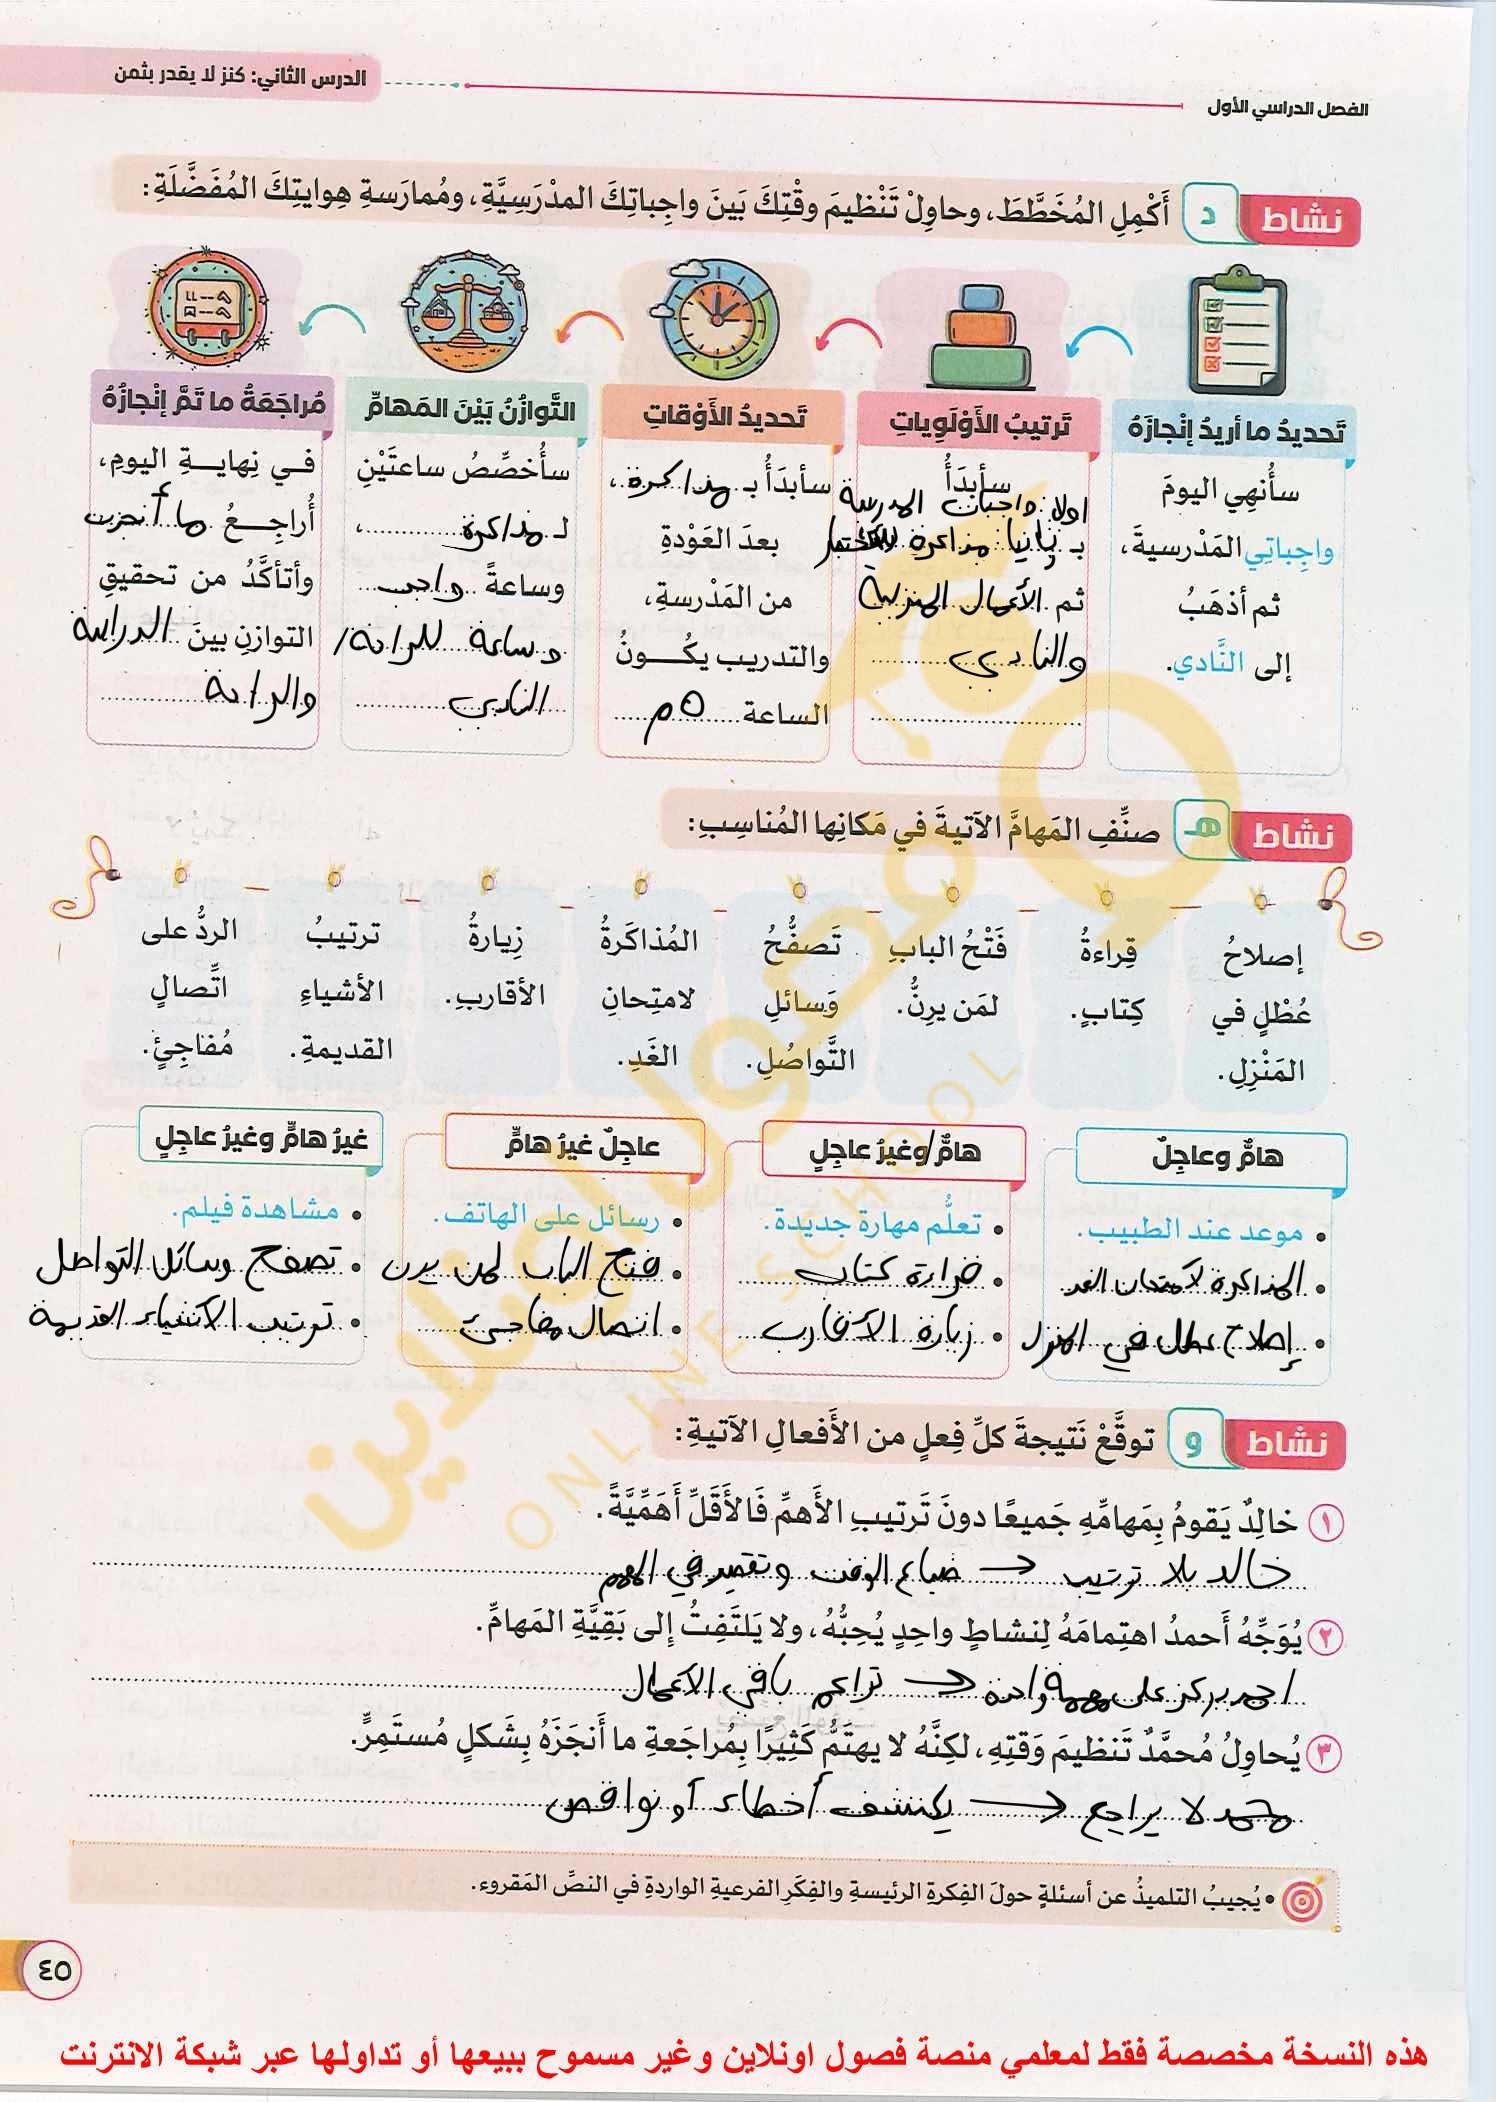 الفصل الدراسي الأول
الدرس الثاني: كنز لا يقدر بثمن
نشاط د أَكْمِلِ المُخَطَّطَ، وحاوِلْ تَنْظيمَ وقْتِكَ بَينَ واجِباتِكَ المدْرَسِيَّةِ، ومُمارَسةِ هِوايتِكَ المُفَضَّلَةِ:
تَحديدُ ما أريدُ إنْجازَهُ
سأُنهِي اليومَ
واجِباتي المَدْرسيةَ،
ثم أذهَبُ
إلى النَّادي.
تَرتيبُ الأَوْلَوِياتِ
سأبدَأُ
اولا: واجبات المدرسة
بـ ثانيا مذاكرة للاختبار
ثم الأعمال المنزلية
والنادي
تَحديدُ الأَوْقاتِ
سأبدَأُ بـ مذاكرة،
بعدَ العَوْدةِ
من المَدْرسةِ،
والتدريب يكُـــونُ
الساعة ٥م
التَّوازُنُ بَيْنَ المَهامِّ
سأُخصِّصُ ساعتَيْنِ
لـ مذاكرة،
وساعةً واجب
وساعة للراحة/
النادي
مُراجَعَةُ ما تَمَّ إنْجازُهُ
في نِهايـــةِ اليومِ،
أُراجِــعُ ما أنجزت
وأتأكَّدُ من تحقيقِ
التوازنِ بينَ الدراسة
والراحة
نشاط هـ صنِّفِ المَهامَّ الآتيةَ في مَكانِها المُناسِبِ:
إصلاحُ عُطْلٍ في المَنْزِلِ.
قِراءةُ كِتابٍ.
فَتْحُ البابِ لمَن يرِنُّ.
تَصفُّحُ وَسائلِ التَّواصُلِ.
المُذاكَرةُ لامتِحانِ الغَدِ.
زِيارةُ الأقاربِ.
ترتيبُ الأشياءِ القديمةِ.
الردُّ على اتِّصالٍ مُفاجِئٍ.
هامٌّ وعاجِلٌ
• موعد عند الطبيب.
• المذاكرة لامتحان الغد
• إصلاح عطل في المنزل
هامٌّ/وغيرُ عاجِلٍ
• تعلُّم مهارة جديدة.
• قراءة كتاب
• زيارة الأقارب
عاجِلٌ غيرُ هامٍّ
• رسائل على الهاتف.
• فتح الباب لمن يرن
• اتصال مفاجئ
غيرُ هامٍّ وغيرُ عاجِلٍ
• مشاهدة فيلم.
• تصفح وسائل التواصل
• ترتيب الأشياء القديمة
نشاط و توقَّعْ نَتيجةَ كلِّ فِعلٍ من الأَفعالِ الآتيةِ:
١ خالِدٌ يَقومُ بِمَهامِّهِ جَميعًا دونَ تَرتيبِ الأَهمِّ فَالأَقَلِّ أَهَمِّيَّةً.
خالد بلا ترتيب → ضياع الوقت وتقصير في المهم
٢ يُوَجِّهُ أَحمدُ اهتِمامَهُ لِنشاطٍ واحِدٍ يُحِبُّهُ، ولا يَلتَفِتُ إلى بَقِيَّةِ المَهامِّ.
احمد يركز على مهمة واحدة → تراكم باقي الأعمال
٣ يُحاوِلُ مُحمَّدٌ تَنظيمَ وَقتِهِ، لكِنَّهُ لا يهتَمُّ كَثيرًا بِمُراجَعةِ ما أَنجَزَهُ بِشَكلٍ مُستَمِرٍّ.
محمد لا يراجع → يكتشف أخطاء أو نواقص
• يُجيبُ التلميذُ عن أسئلةٍ حولَ الفِكرةِ الرئيسةِ والفِكَرِ الفرعيةِ الواردةِ في النصِّ المَقروء.
٤٥
هذه النسخة مخصصة فقط لمعلمي منصة فصول اونلاين وغير مسموح ببيعها أو تداولها عبر شبكة الانترنت
فصول اونلاين
ONLINE SCHOOL